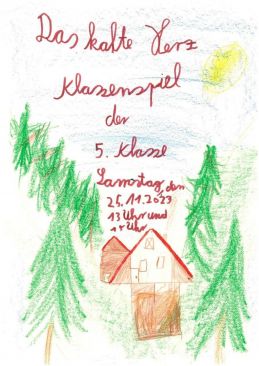 Das kalte Herz
Klassenspiel
der
5. Klasse
Samstag, den
25.11.2023
13 Uhr und
Uhr